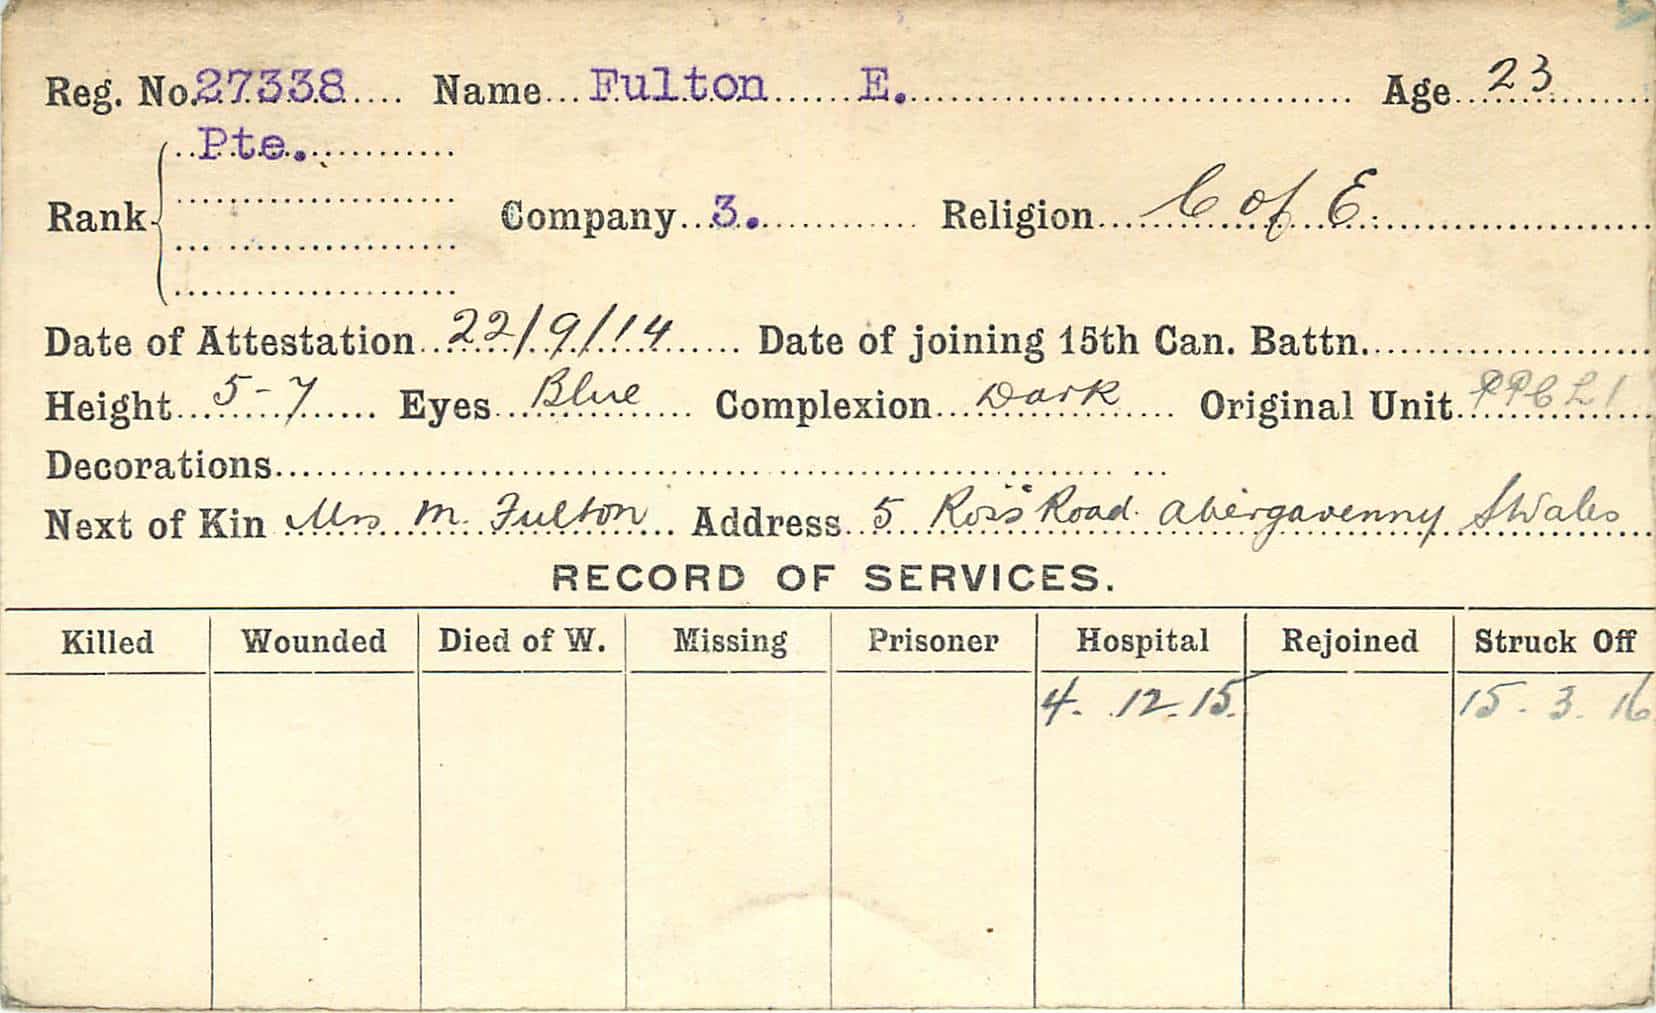 Reg. No. 27338 Name Fulton E. Age 23
Pte.
Rank Company 3. Religion C of E.
Date of Attestation 22/9/14 Date of joining 15th Can. Battn.
Height 5-7 Eyes Blue Complexion Dark Original Unit PPCLI
Decorations
Next of Kin Mrs M. Fulton Address 5 Ross Road Abergavenny S Wales
RECORD OF SERVICES.
Killed Wounded Died of W. Missing Prisoner Hospital Rejoined Struck Off
4. 12. 15. 15. 3. 16